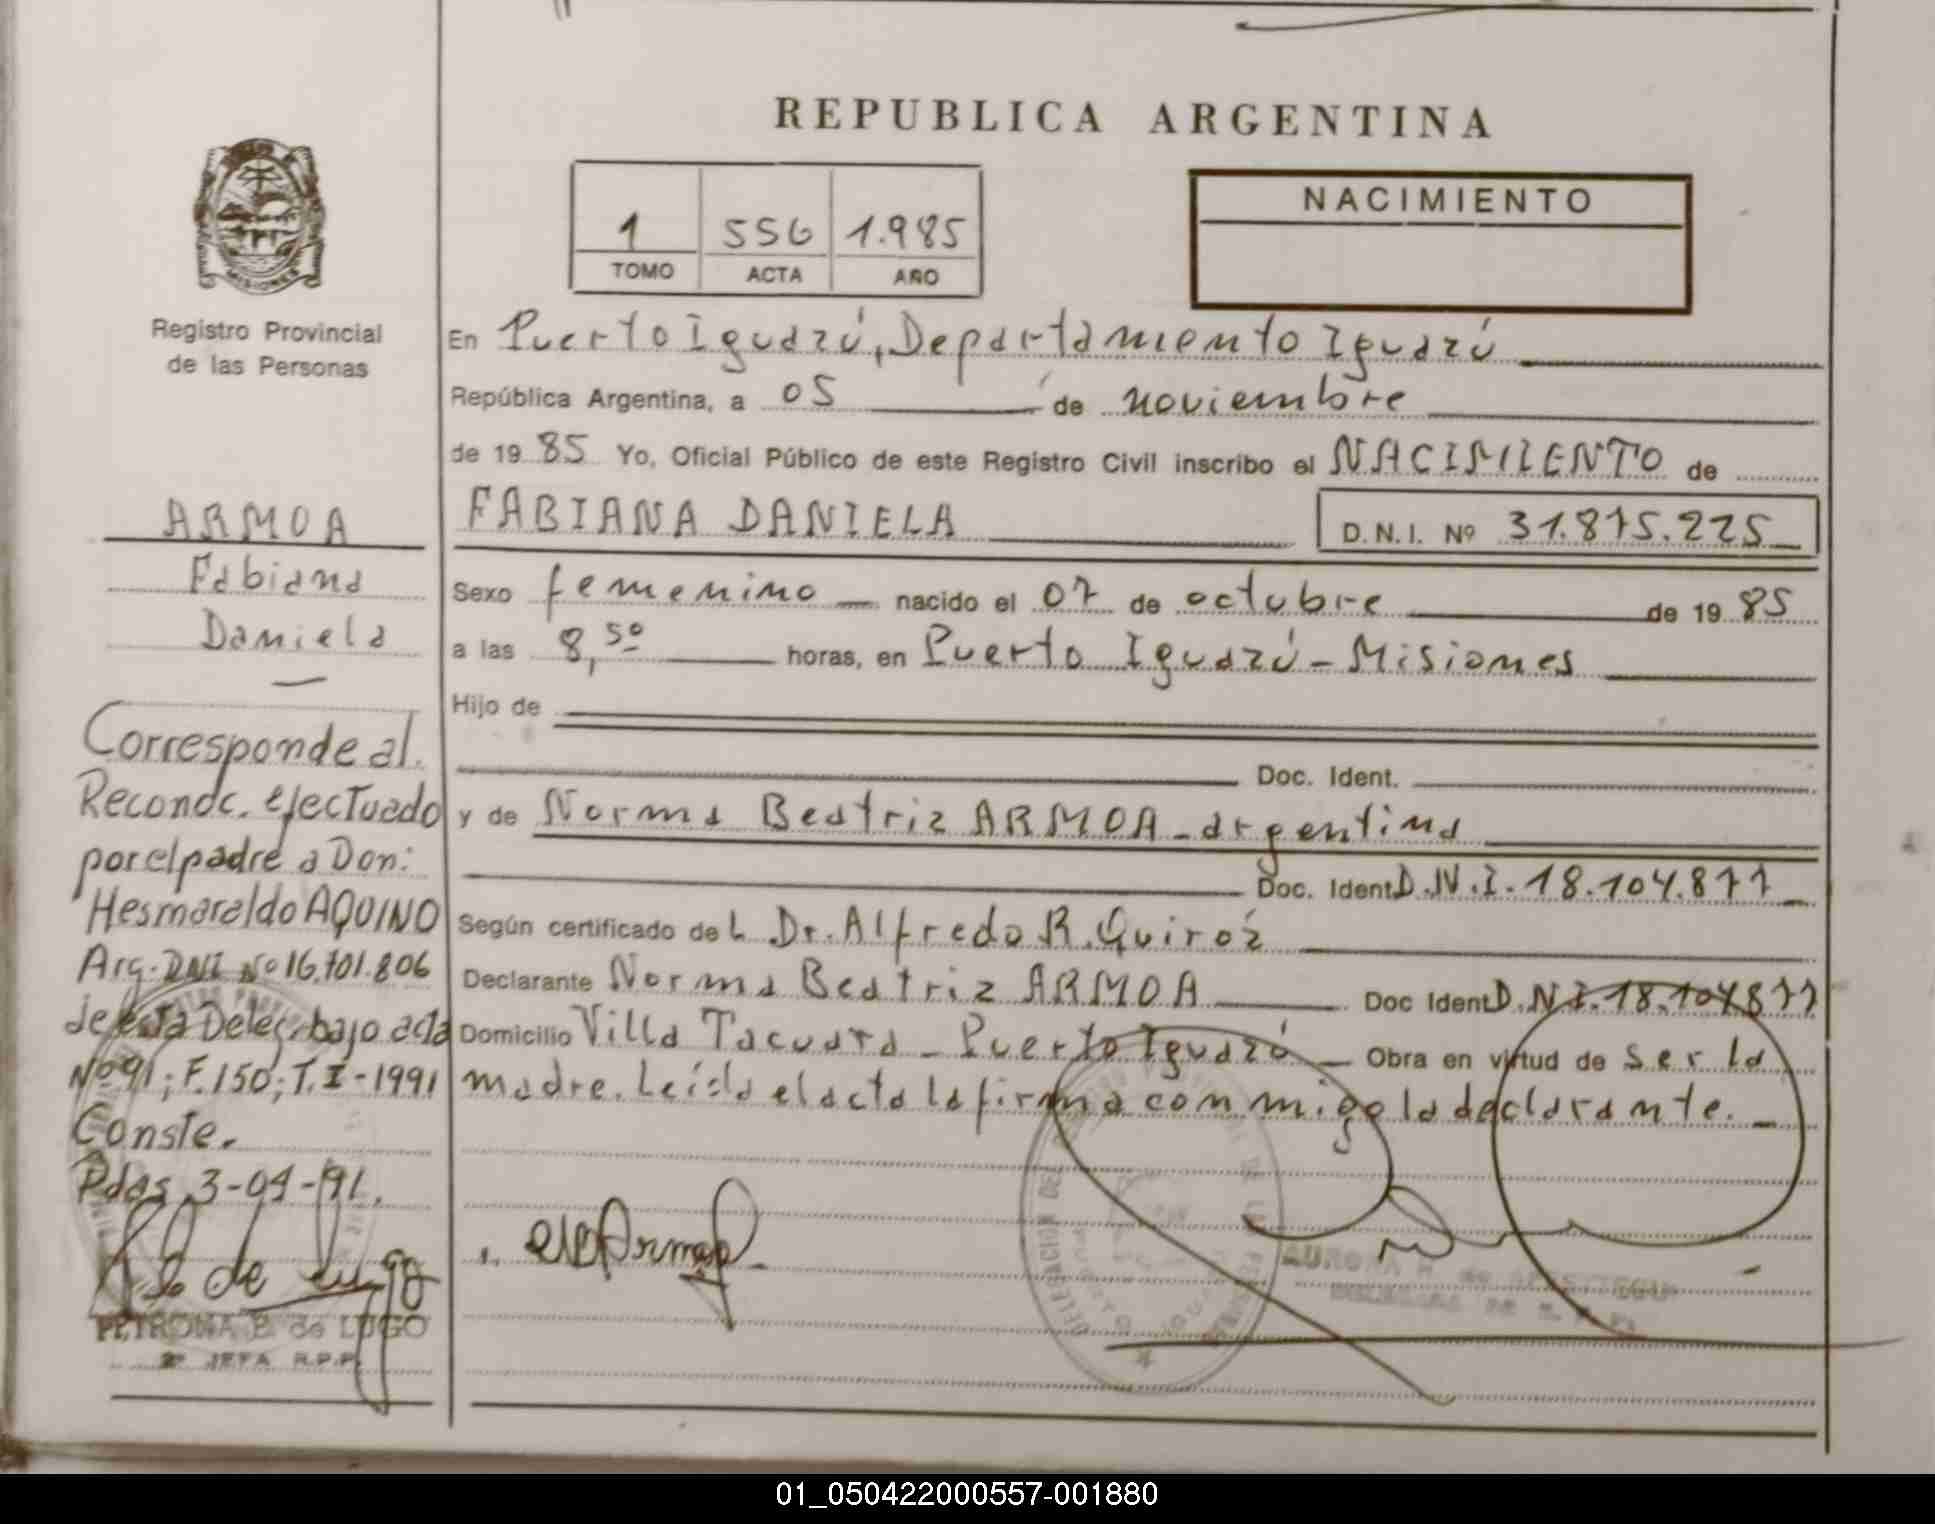 REPUBLICA ARGENTINA
1 556 1.985
TOMO ACTA AÑO
NACIMIENTO
MISIONES
Registro Provincial
de las Personas
ARMOA
Fabiana
Daniela
Corresponde al.
Reconoc. efectuado
por el padre a Don:
Hesmaraldo AQUINO
Arg. DNI Nº 16.701.806
de esta Deleg. bajo acta
Nº 91; F. 150; T. I - 1991
Conste.
Pdas, 3-04-91.
PETRONA B. de LUGO
2ª JEFA R.P.P.
En Puerto Iguazú, Departamiento Iguazú
República Argentina, a 05 de noviembre
de 19 85 Yo, Oficial Público de este Registro Civil inscribo el NACIMIENTO de
FABIANA DANIELA D.N.I. Nº 31.875.225
Sexo femenino nacido el 07 de octubre de 19 85
a las 8,50 horas, en Puerto Iguazú - Misiones
Hijo de
Doc. Ident.
y de Norma Beatriz ARMOA - argentina
Doc. Ident D.N.I. 18.104.877
Según certificado del Dr. Alfredo R. Quiróz
Declarante Norma Beatriz ARMOA Doc Ident D.N.I. 18.104877
Domicilio Villa Tacuara - Puerto Iguazú Obra en virtud de ser la
madre. Leída el acta la firma conmigo la declarante.
DELEGACION DEL REGISTRO
AURORA
01_050422000557-001880